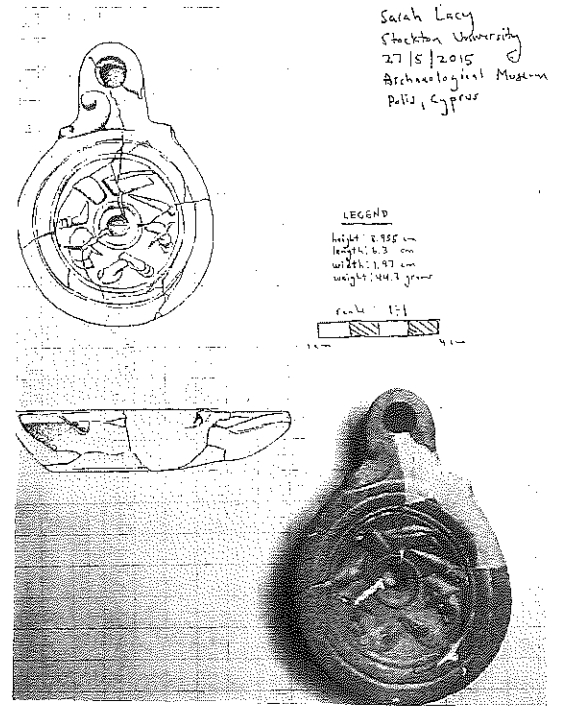 Sarah Lacy
Stockton University
27/5/2015
Archaeological Museum
Polis, Cyprus
LEGEND
height: 8.955 cm
length: 6.3 cm
width: 1.97 cm
weight: 44.3 grams
scale: 1:1
4 cm